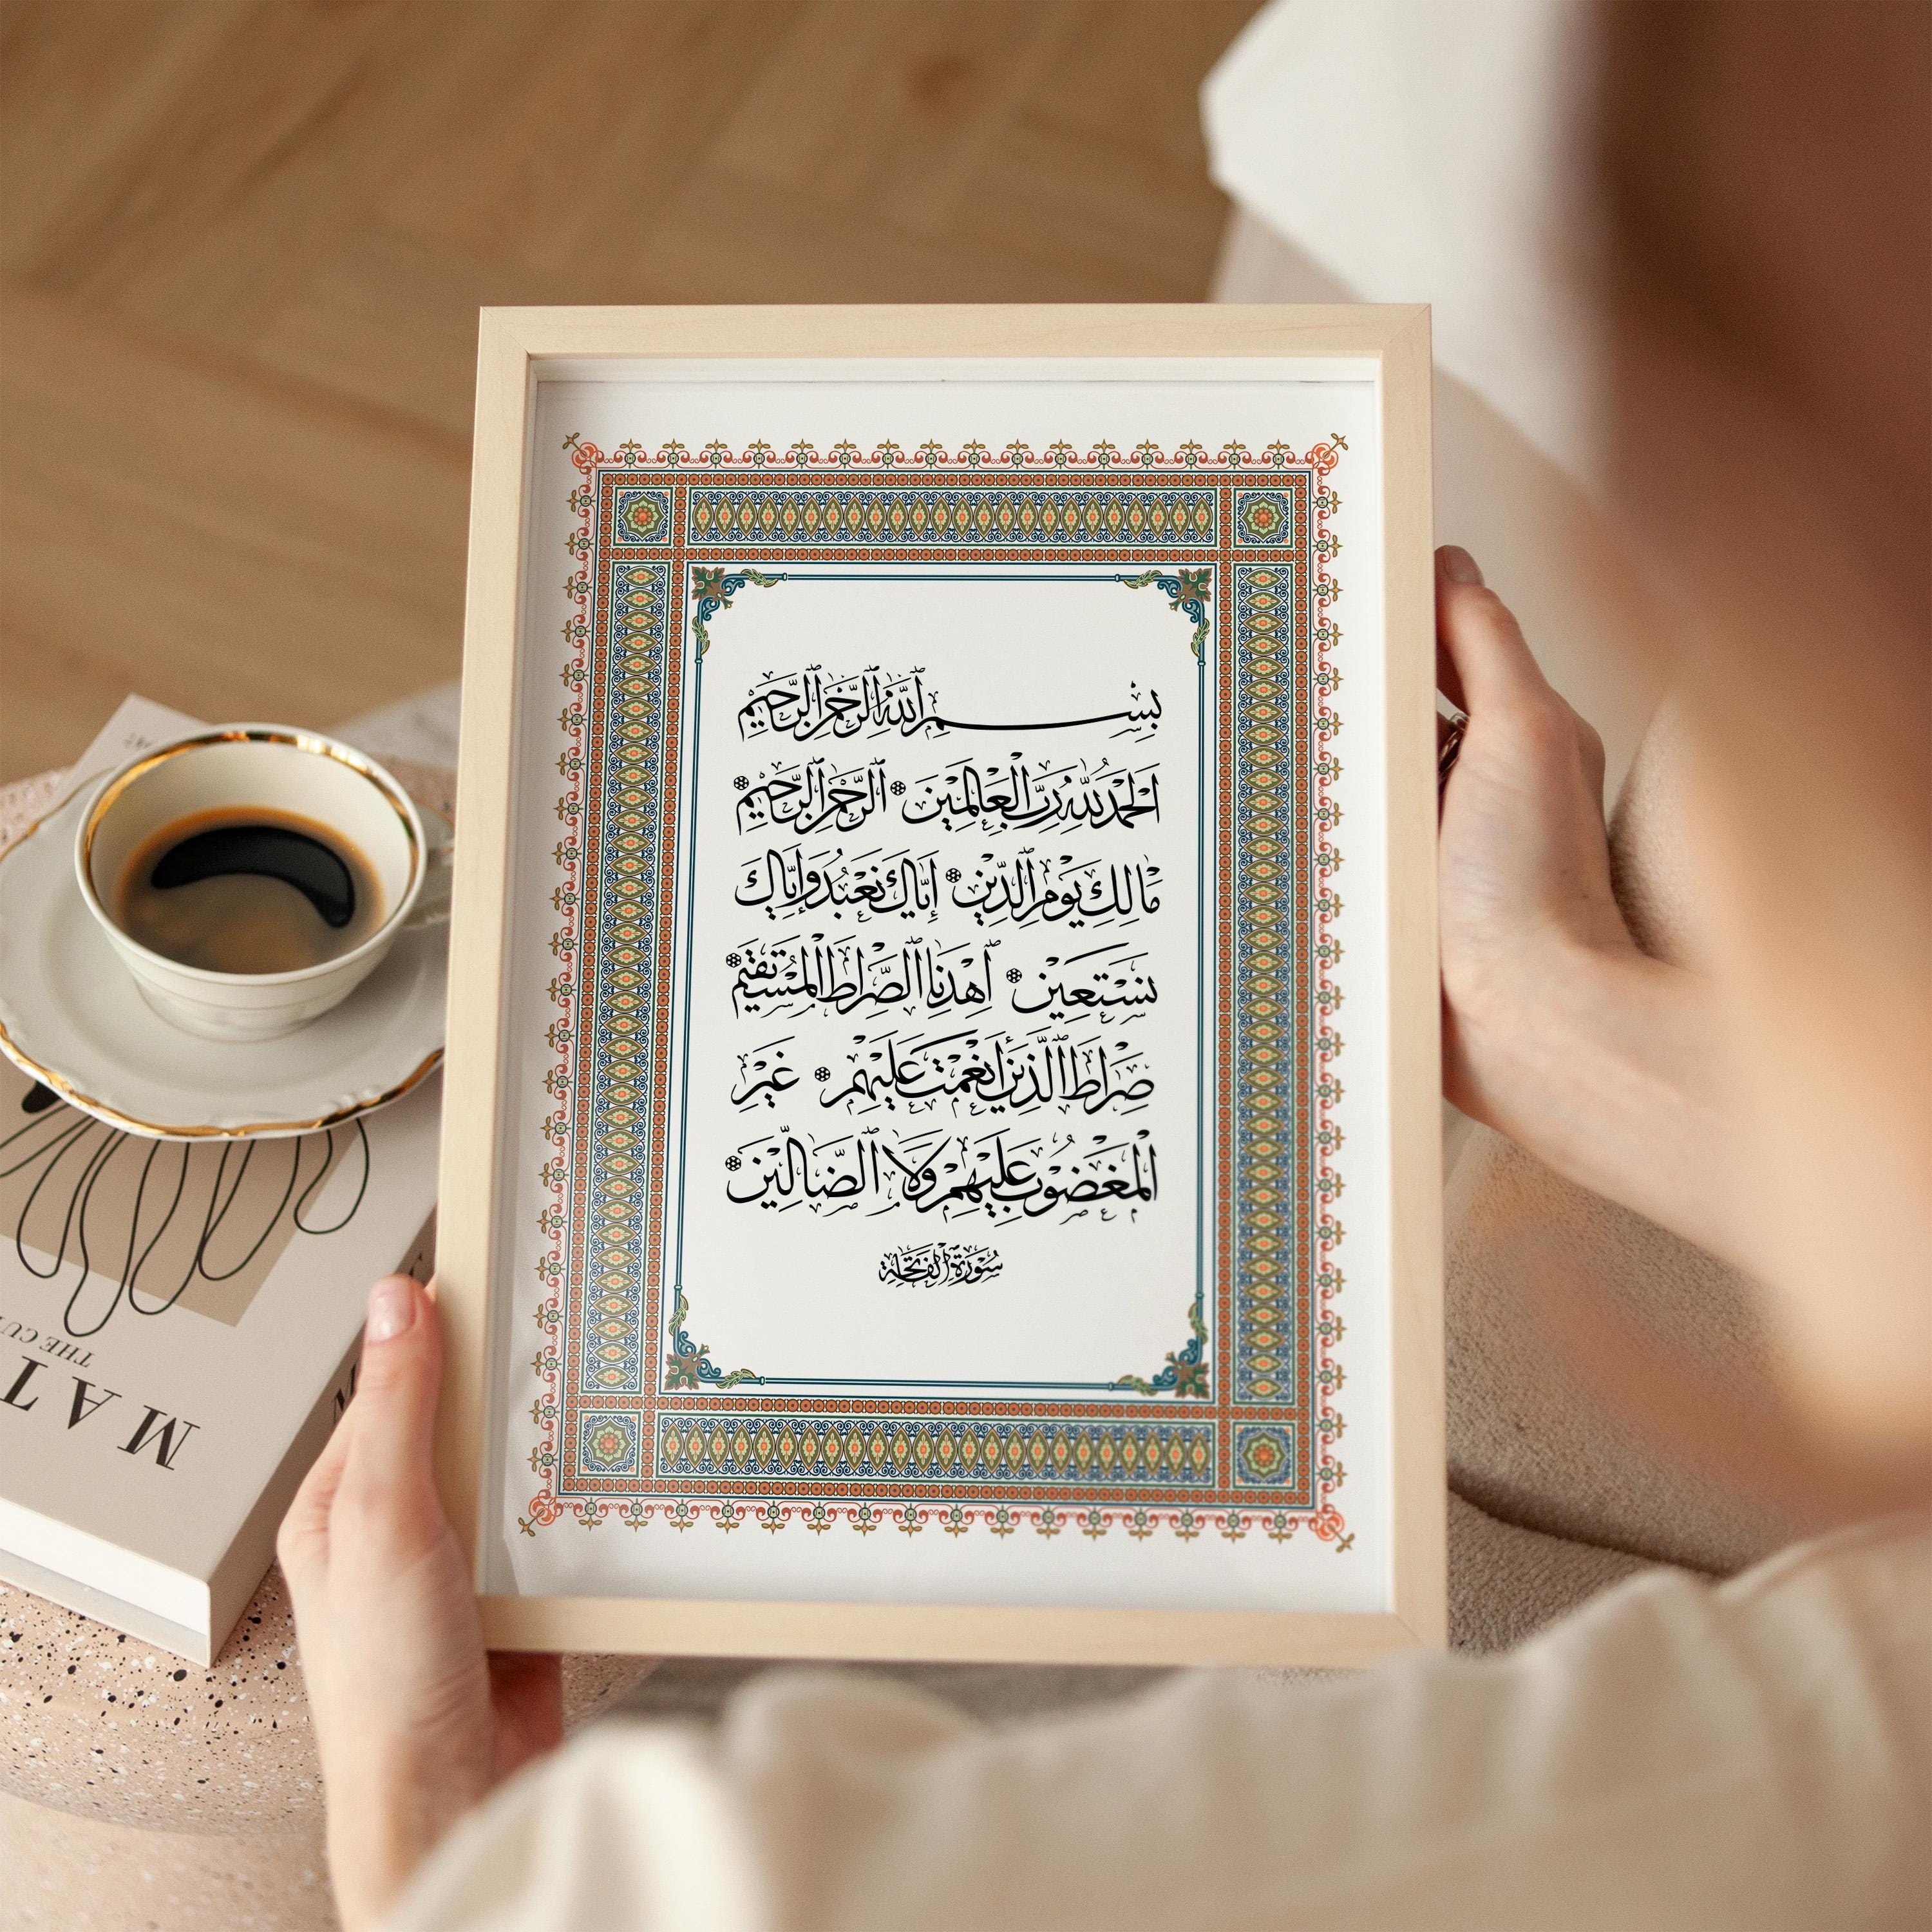 بِسْمِ ٱللَّهِ ٱلرَّحْمَٰنِ ٱلرَّحِيمِ
اَلْحَمْدُ لِلَّهِ رَبِّ الْعَالَمِينَ ۞ ٱلرَّحْمَٰنِ ٱلرَّحِيمِ ۞
مَالِكِ يَوْمِ ٱلدِّينِ ۞ إِيَّاكَ نَعْبُدُ وَإِيَّاكَ
نَسْتَعِينُ ۞ ٱهْدِنَا ٱلصِّرَاطَ الْمُسْتَقِيمَ ۞
صِرَاطَ ٱلَّذِينَ أَنْعَمْتَ عَلَيْهِمْ ۞ غَيْرِ
الْمَغْضُوبِ عَلَيْهِمْ وَلَا ٱلضَّالِّينَ ۞
سُورَةُ الْفَاتِحَةِ
THE
MAT